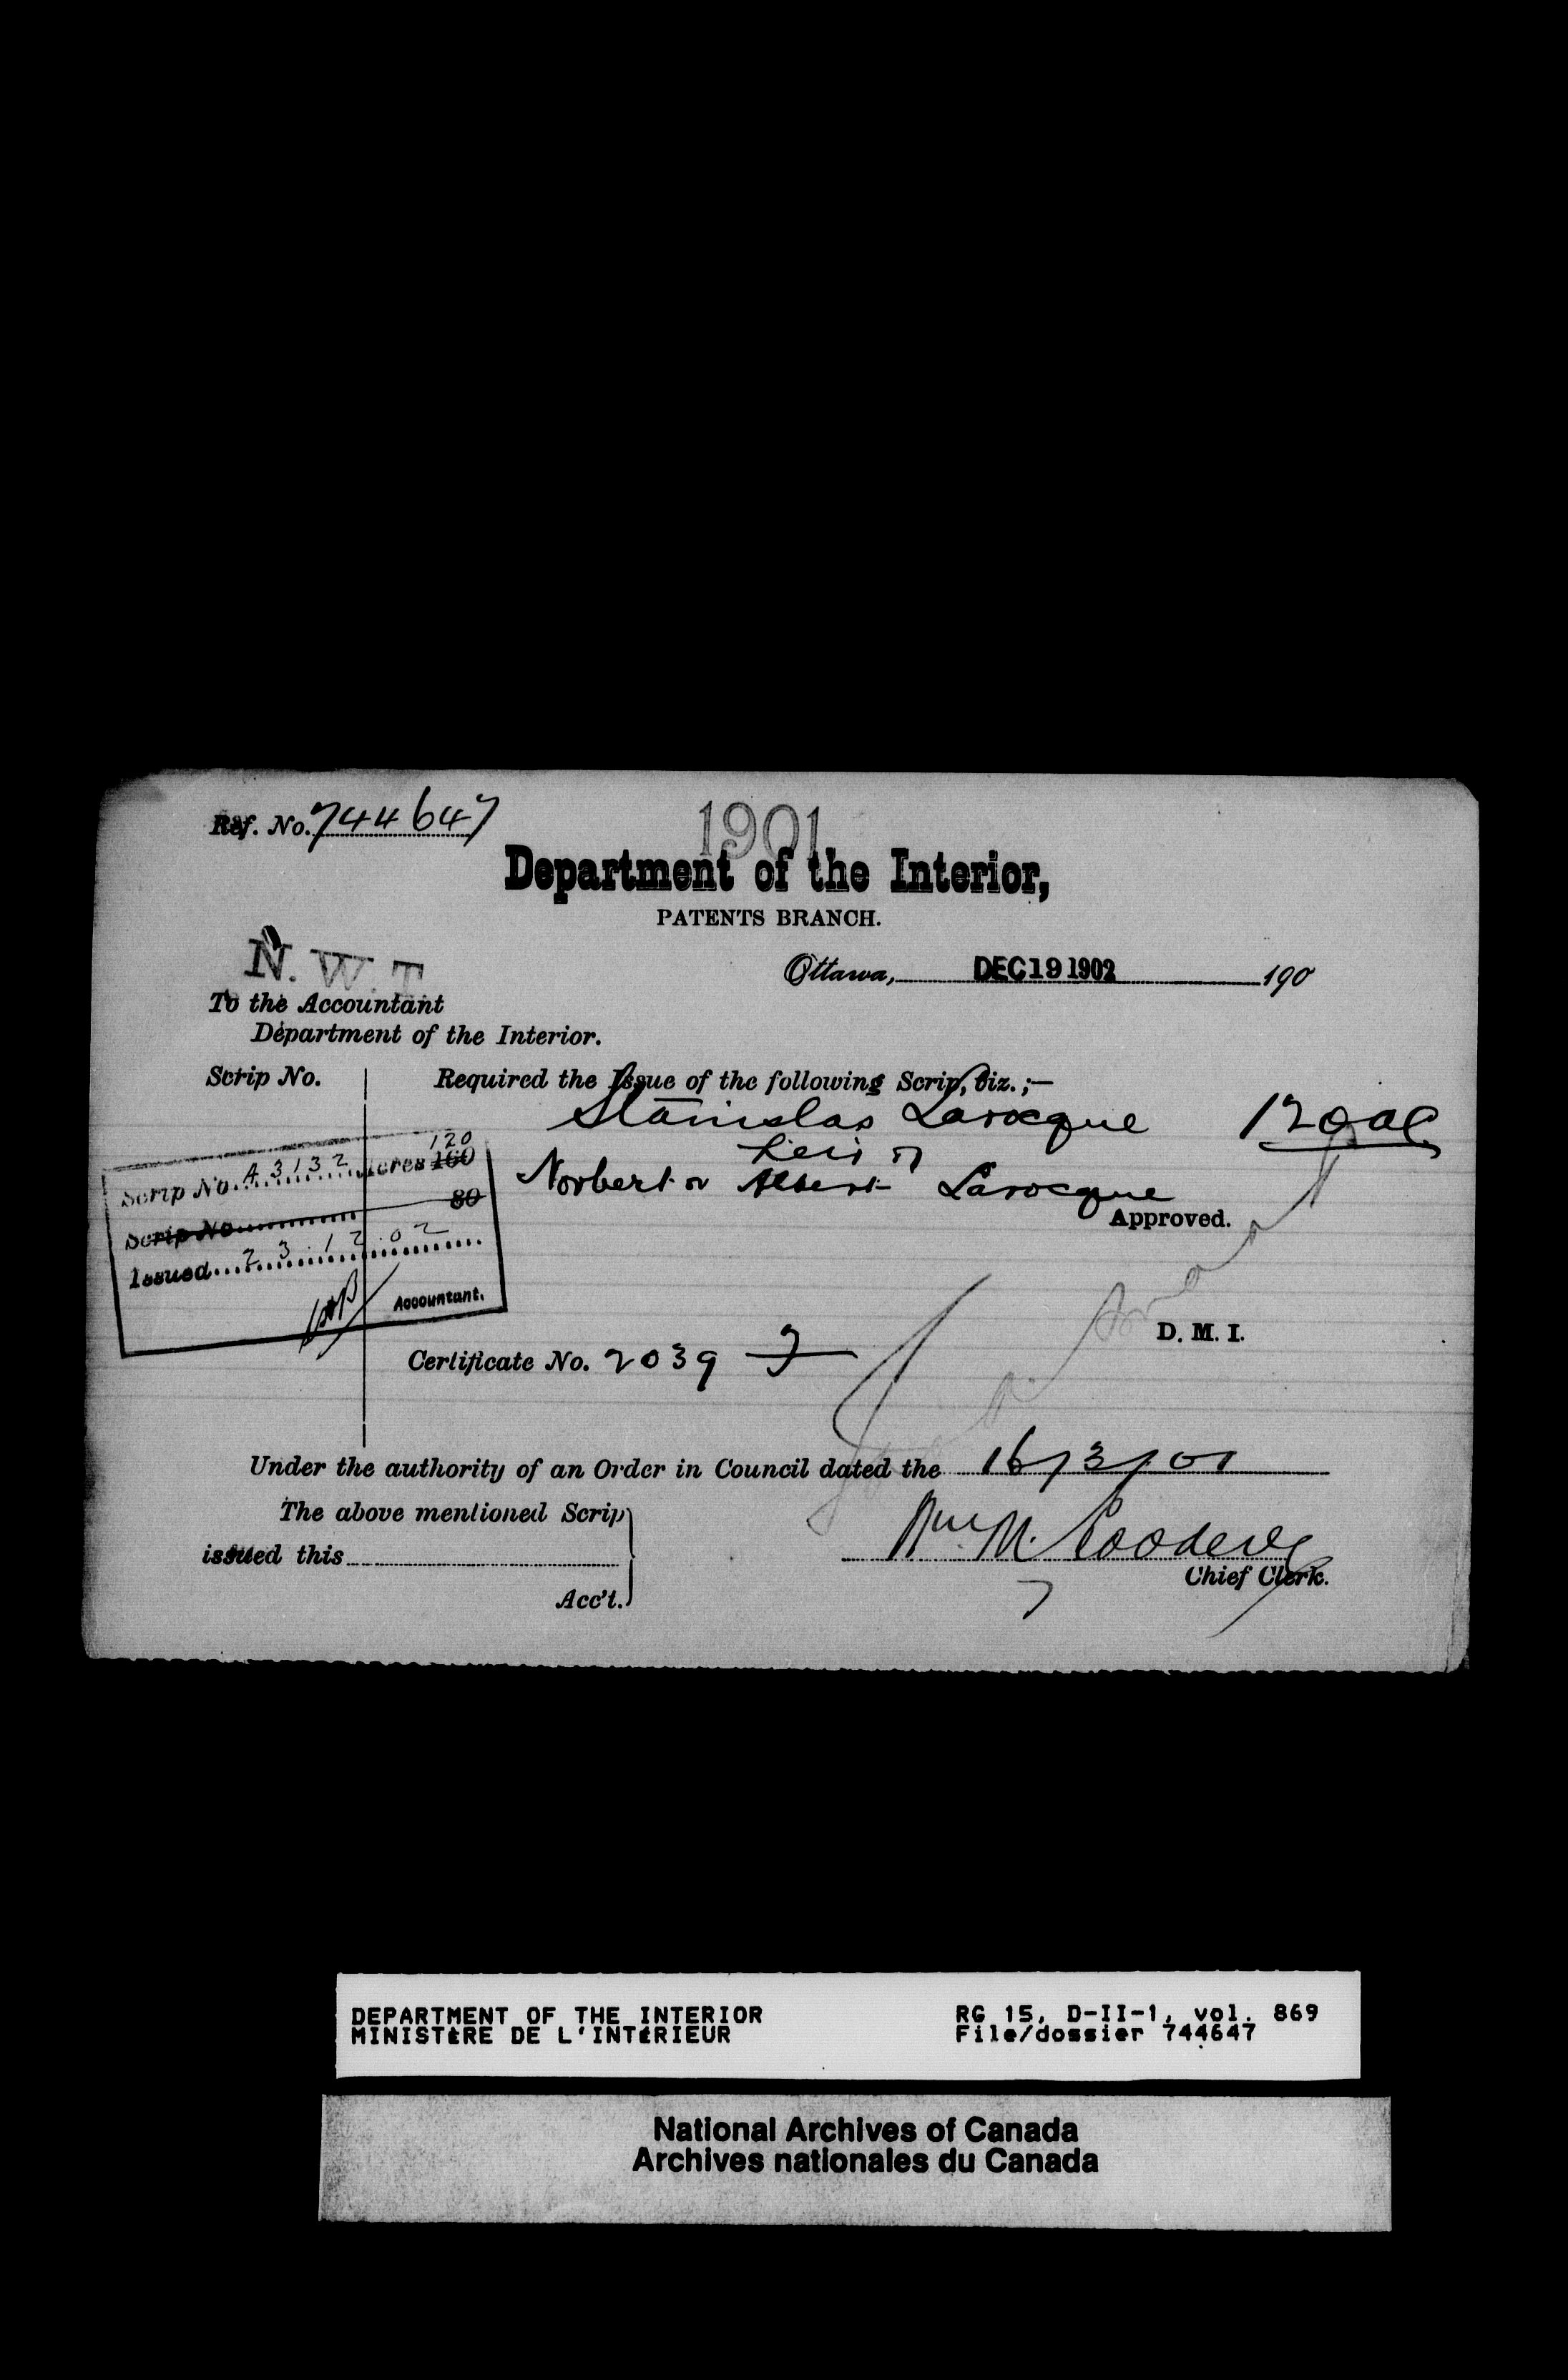 Ref. No. 744647
1901
Department of the Interior,
PATENTS BRANCH.
N. W. T.
Ottawa, DEC 19 1902 190
To the Accountant
Department of the Interior.
Scrip No.
Required the Issue of the following Scrip, viz.;—
Stanislas Larocque 120 ac
heir of
Norbert or Albert Larocque
Approved.
120
Scrip No. A 3132 Acres 160
Scrip No. 80
Issued 23.12.02
Accountant.
D. M. I.
Certificate No. 2039
Under the authority of an Order in Council dated the 16/3/01
The above mentioned Scrip
issued this
Acc't.
Wm. M. Gooderve
Chief Clerk.
DEPARTMENT OF THE INTERIOR
MINISTÈRE DE L'INTÉRIEUR
RG 15, D-II-1, vol. 869
File/dossier 744647
National Archives of Canada
Archives nationales du Canada